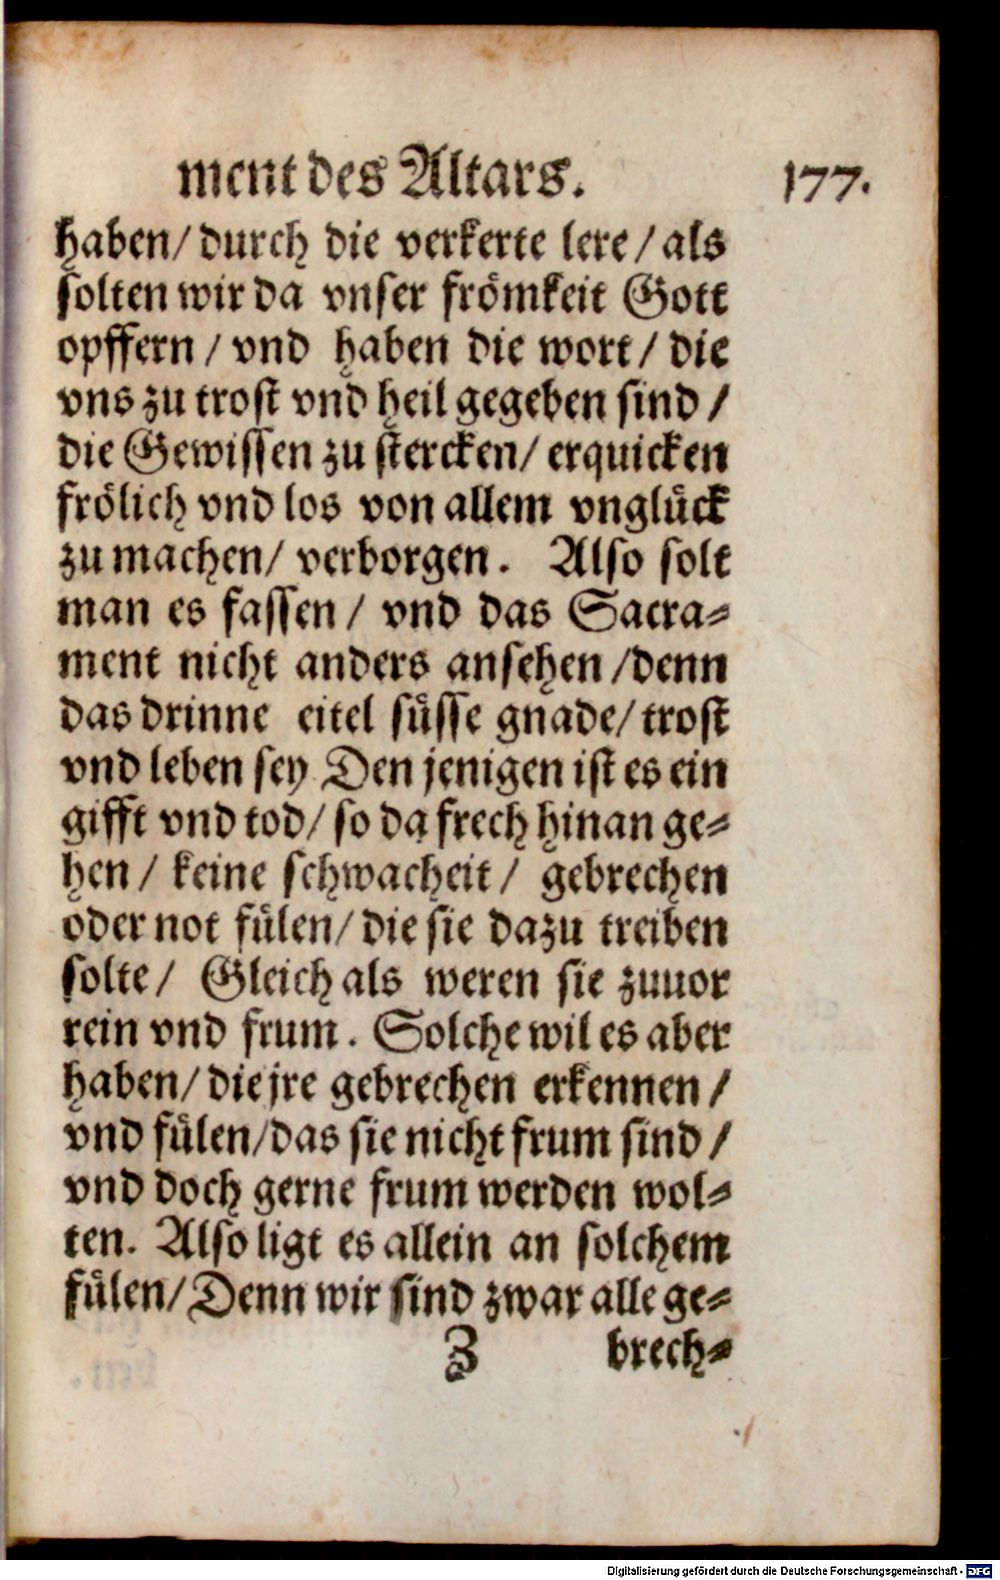 ment des Altars. 177.
haben/ durch die verkerte lere/ als
solten wir da vnser frömkeit Gott
opffern/ vnd haben die wort/ die
vns zu trost vnd heil gegeben sind/
die Gewissen zu stercken/ erquicken
frölich vnd los von allem vnglück
zu machen/ verborgen. Also solt
man es fassen/ vnd das Sacra⸗
ment nicht anders ansehen/denn
das drinne eitel süsse gnade/ trost
vnd leben sey Den jenigen ist es ein
gifft vnd tod/ so da frech hinan ge⸗
hen/ keine schwacheit/ gebrechen
oder not fülen/ die sie dazu treiben
solte/ Gleich als weren sie zuuor
rein vnd frum. Solche wil es aber
haben/ die jre gebrechen erkennen/
vnd fülen/das sie nicht frum sind/
vnd doch gerne frum werden wol⸗
ten. Also ligt es allein an solchem
fülen/ Denn wir sind zwar alle ge⸗
Z brech⸗
Digitalisierung gefördert durch die Deutsche Forschungsgemeinschaft - DFG